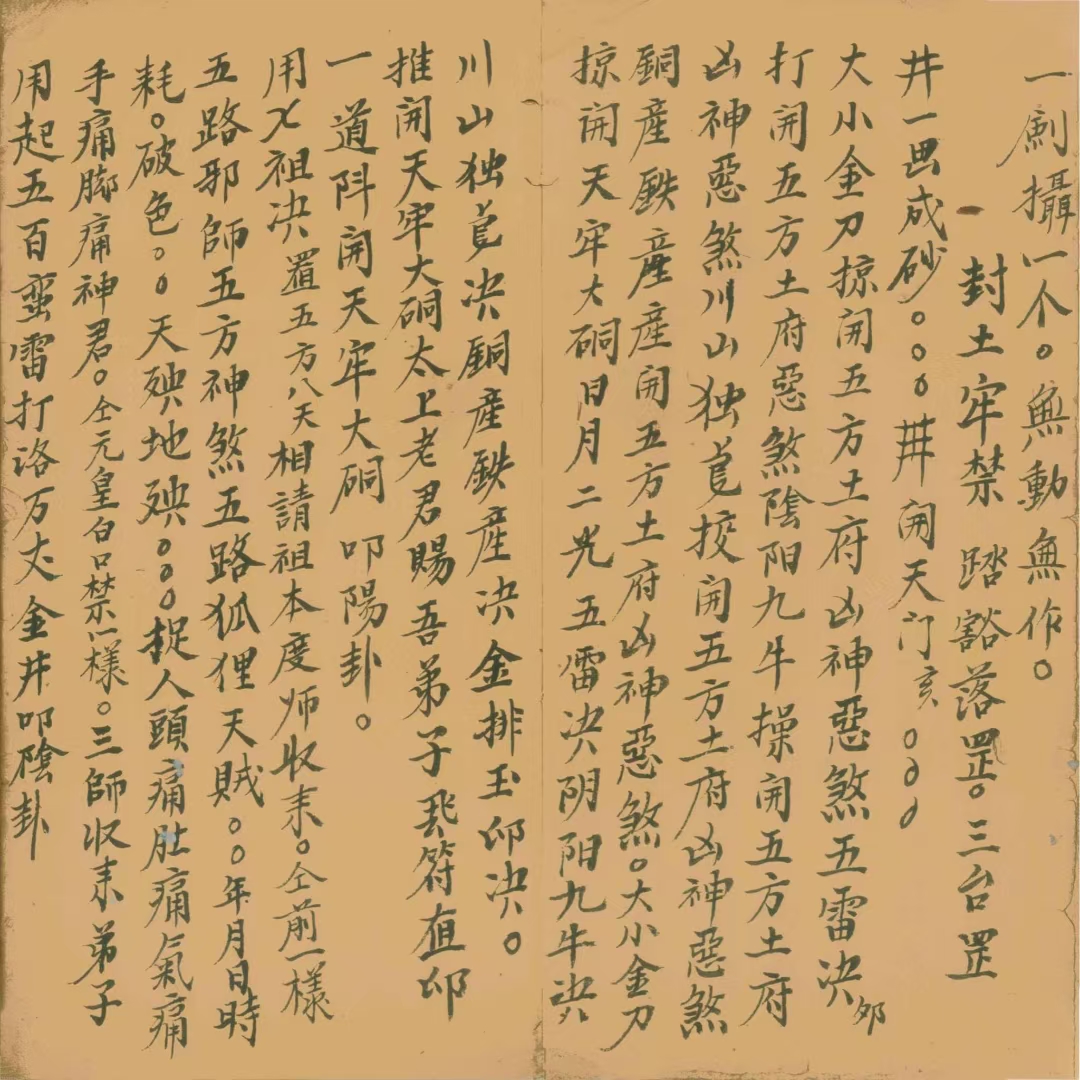 一劍攝一个。無動無作。
一封土牢禁 踏豁落罡。三台罡
井一畄成砂。。。井開天门亥。。。
大小金刀掠開五方土府凶神惡煞五雷决邜
打開五方土府惡煞陰阳九牛操開五方土府
凶神惡煞川山独《挍開五方土府凶神惡煞
銅産鉄産産開五方土府凶神惡煞。大小金刀
掠開天牢大硐日月二光五雷决阴阳九牛决
川山独决銅産鉄産决金排玉邜决。
推開天牢大硐太上老君賜吾弟子符值邜
一道阧開天牢大硐 叩陽卦。
用祖决置五方八天相請祖本度师收来。仝前一樣
五路邪師五方神煞五路狐狸天賊。。年月日時
耗。破色。。天殃地殃。。。捉人頭痛肚痛氣痛
手痛脚痛神君。仝元皇白口禁一樣。三師收来弟子
用起五百蛮雷打洛万丈金井叩陰卦